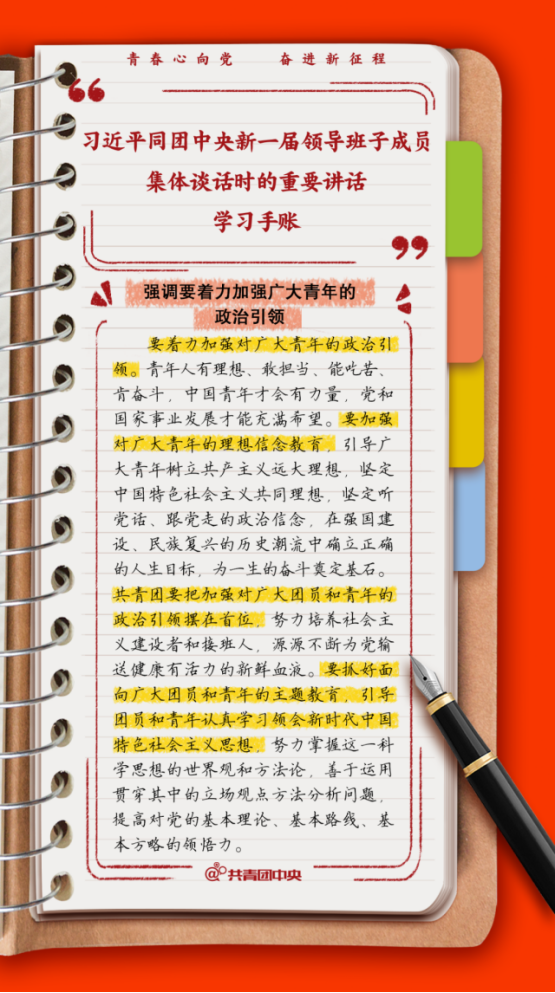 青春心向党 奋进新征程
习近平同团中央新一届领导班子成员
集体谈话时的重要讲话
学习手账
强调要着力加强广大青年的
政治引领
要着力加强对广大青年的政治引
领。青年人有理想、敢担当、能吃苦、
肯奋斗，中国青年才会有力量，党和
国家事业发展才能充满希望。要加强
对广大青年的理想信念教育，引导广
大青年树立共产主义远大理想，坚定
中国特色社会主义共同理想，坚定听
党话、跟党走的政治信念，在强国建
设、民族复兴的历史潮流中确立正确
的人生目标，为一生的奋斗奠定基石。
共青团要把加强对广大团员和青年的
政治引领摆在首位，努力培养社会主
义建设者和接班人，源源不断为党输
送健康有活力的新鲜血液。要抓好面
向广大团员和青年的主题教育，引导
团员和青年认真学习领会新时代中国
特色社会主义思想，努力掌握这一科
学思想的世界观和方法论，善于运用
贯穿其中的立场观点方法分析问题，
提高对党的基本理论、基本路线、基
本方略的领悟力。
@共青团中央